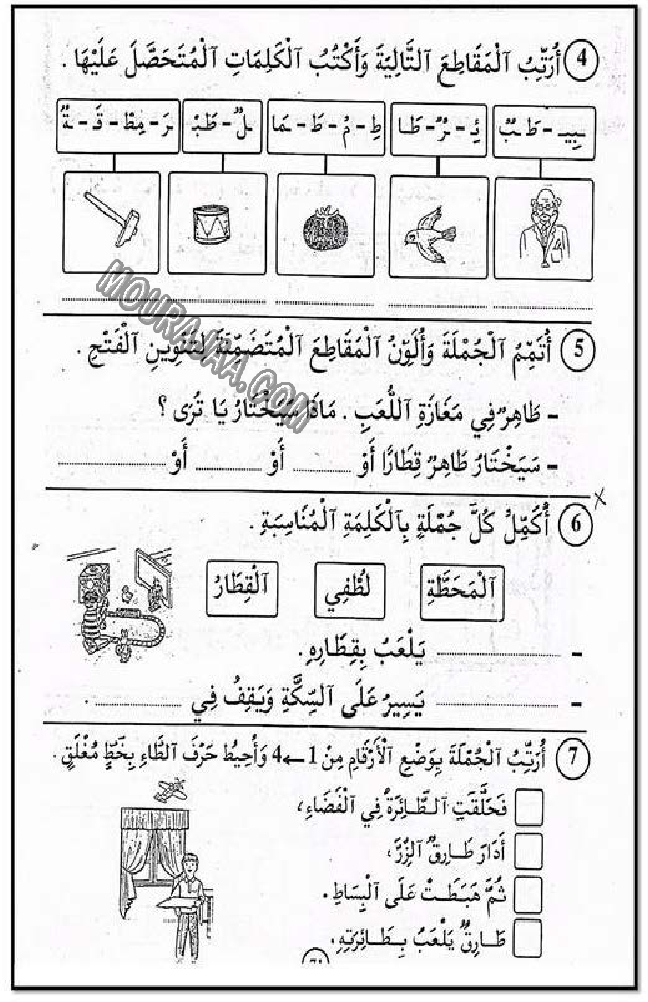 4 أُرَتِّبُ ٱلْمَقَاطِعَ ٱلتَّالِيَةَ وَأَكْتُبُ ٱلْكَلِمَاتِ ٱلْمُتَحَصَّلَ عَلَيْهَا .
ـبِيـ - طَـ ـبٌ
ئِـ - ـرٌ - طَـا
طِـ - ـمْ - طَـ - ـمَا
ـلٌ - طَبْـ
ـرَ - مِطْـ - قَـ - ـةٌ
MOURAJAA.COM
5 أُتَمِّمُ ٱلْجُمْلَةَ وَأُلَوِّنُ ٱلْمَقَاطِعَ ٱلْمُتَضَمِّنَةَ لِتَنْوِينِ ٱلْفَتْحِ .
- طَاهِرٌ فِي مَغَازَةِ ٱللُّعَبِ . مَاذَا سَيَخْتَارُ يَا تُرَى ؟
- سَيَخْتَارُ طَاهِرٌ قِطَارًا أَوْ ........ أَوْ ........ أَوْ ........
6 أُكَمِّلُ كُلَّ جُمْلَةٍ بِٱلْكَلِمَةِ ٱلْمُنَاسِبَةِ .
ٱلْمَحَطَّةِ
لُطْفِي
ٱلْقِطَارُ
- ........ يَلْعَبُ بِقِطَارِهِ .
- ........ يَسِيرُ عَلَى ٱلسِّكَّةِ وَيَقِفُ فِي ........
7 أُرَتِّبُ ٱلْجُمْلَةَ بِوَضْعِ ٱلْأَرْقَامِ مِنْ 1 ← 4 وَأُحِيطُ حَرْفَ ٱلطَّاءِ بِخَطٍّ مُغْلَقٍ .
فَحَلَّقَتِ ٱلطَّائِرَةُ فِي ٱلْفَضَاءِ،
أَدَارَ طَارِقٌ ٱلزِّرَّ،
ثُمَّ هَبَطَتْ عَلَى ٱلْبِسَاطِ .
طَارِقٌ يَلْعَبُ بِطَائِرَتِهِ،